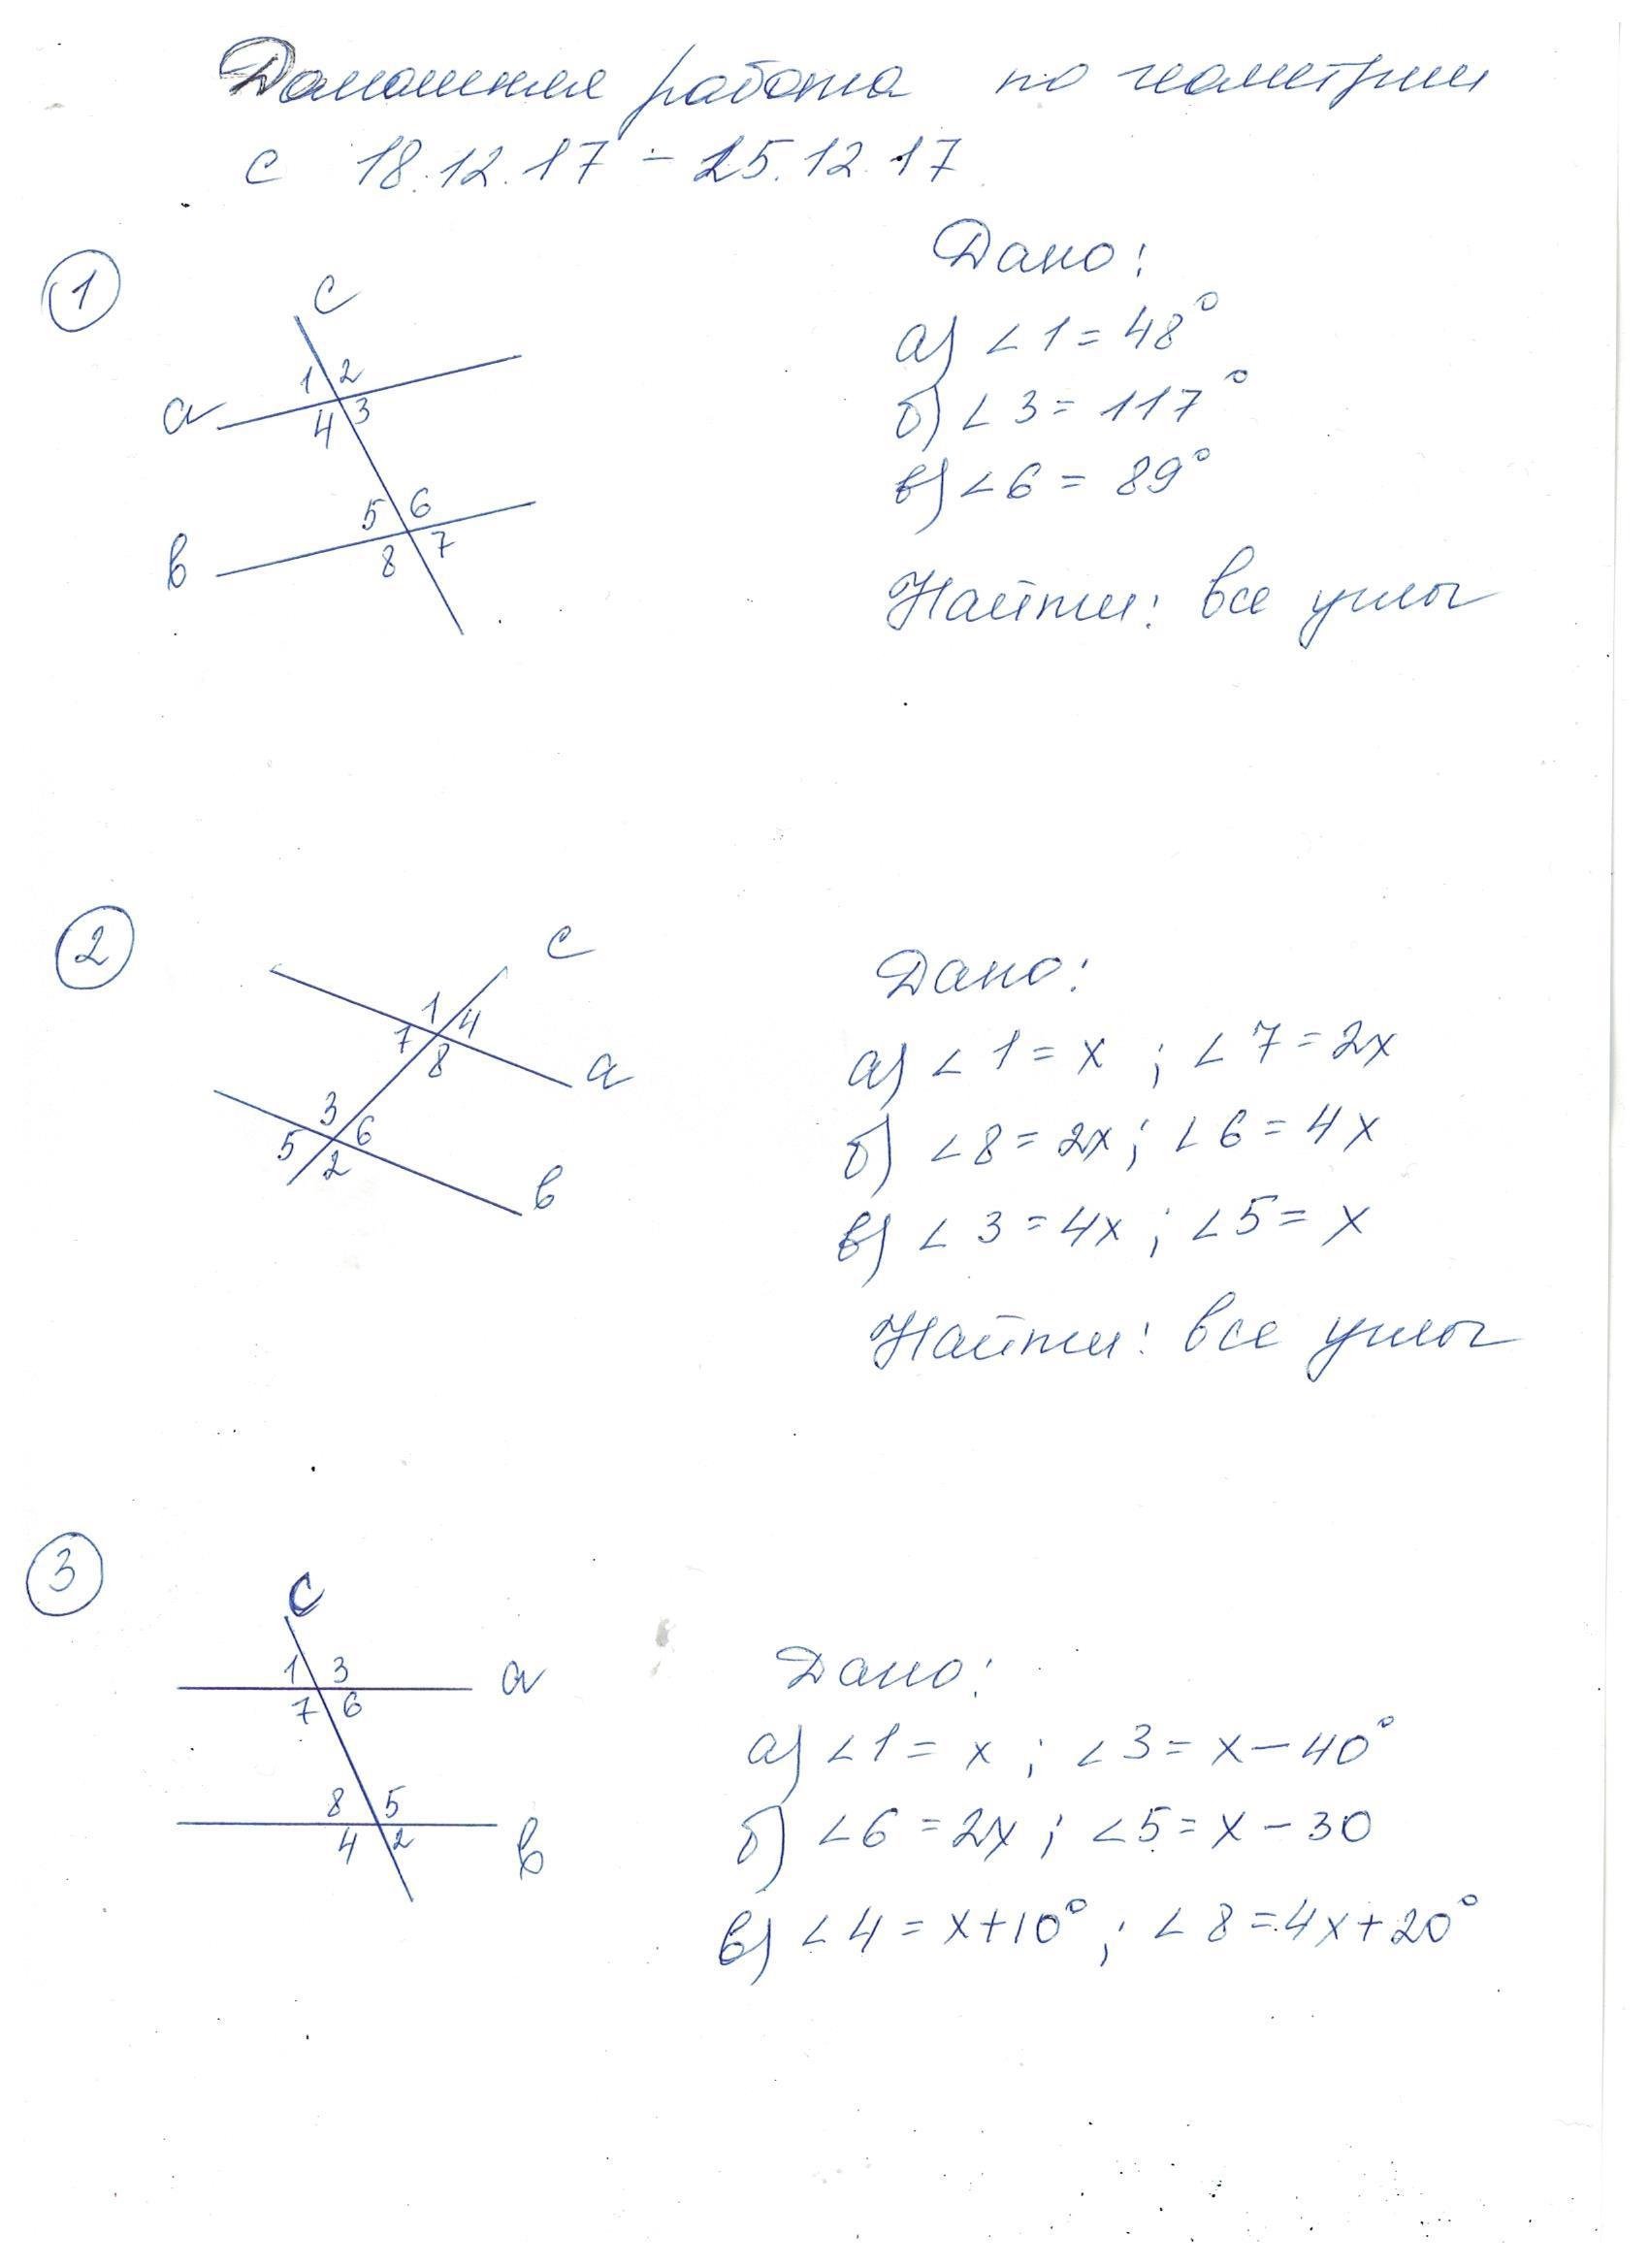 Домашняя работа по геометрии
с 18.12.17 - 25.12.17
1
Дано:
c
а) ∠1 = 48°
1 2
a
4 3
б) ∠3 = 117°
в) ∠6 = 89°
5 6
b
8 7
Найти: все углы
2
c
Дано:
1 4
7 8
a
а) ∠1 = x ; ∠7 = 2x
3 6
5 2
б) ∠8 = 2x ; ∠6 = 4x
b
в) ∠3 = 4x ; ∠5 = x
Найти: все углы
3
c
1 3
a
7 6
Дано:
а) ∠1 = x ; ∠3 = x - 40°
8 5
б) ∠6 = 2x ; ∠5 = x - 30
4 2
b
в) ∠4 = x+10° ; ∠8 = 4x+20°